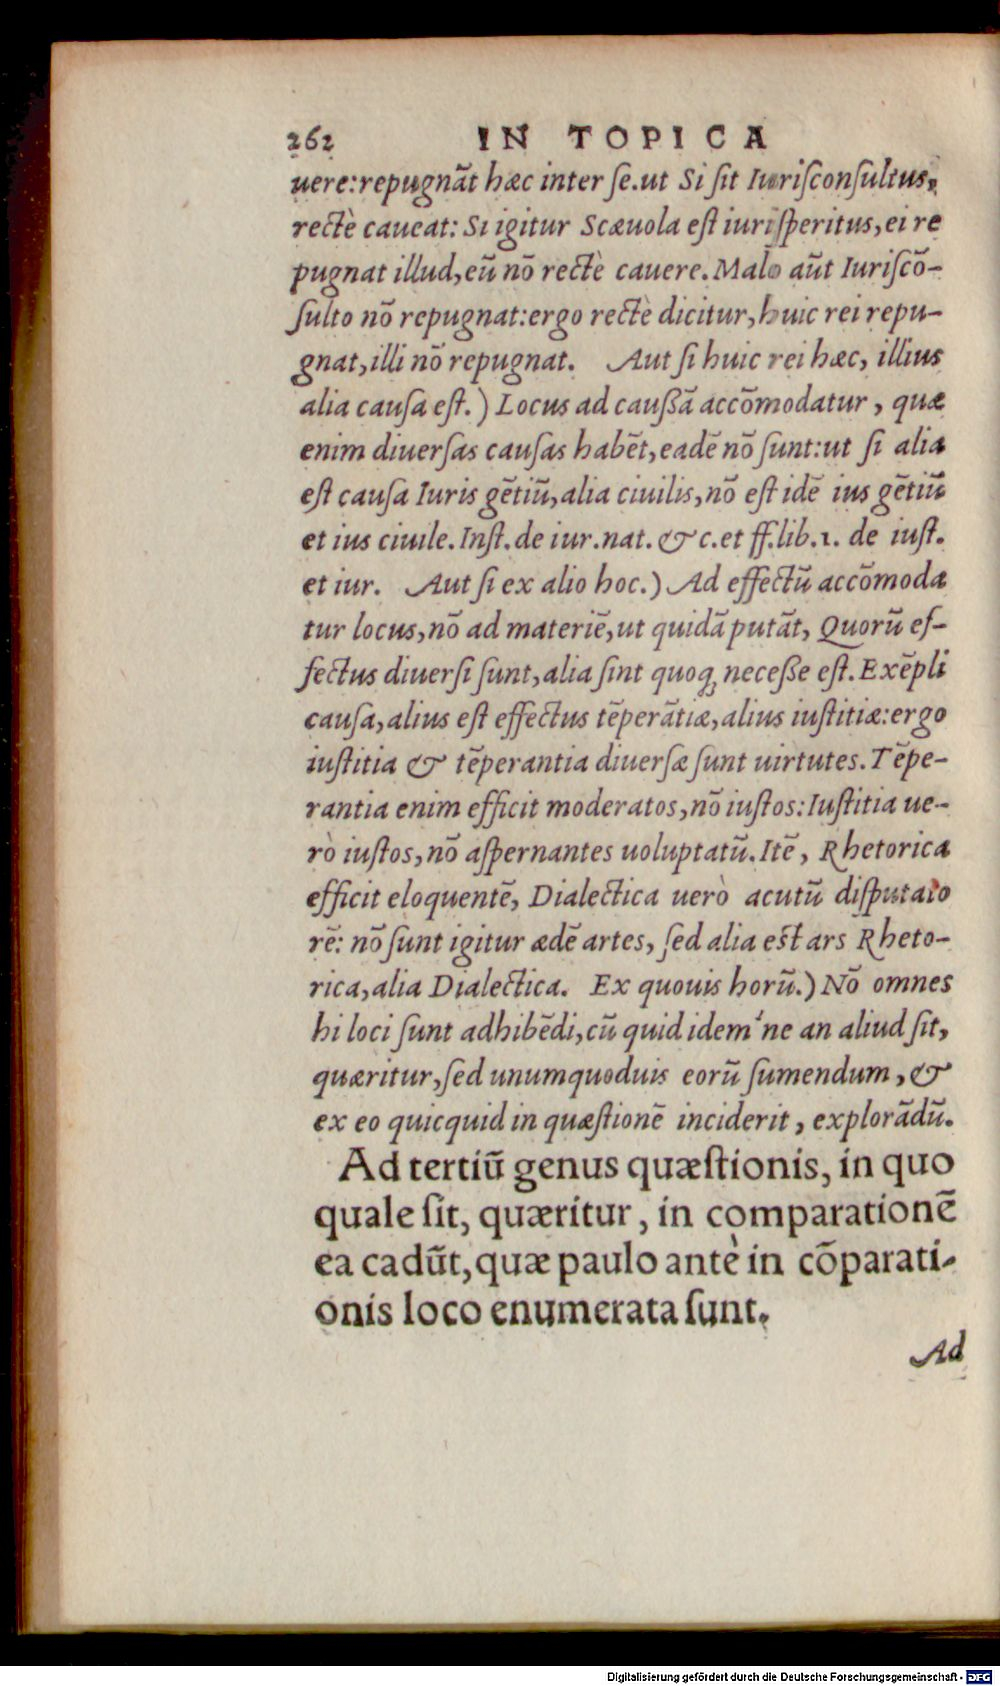 262 IN TOPICA
uere:repugnãt hæc inter ſe.ut Si ſit Iuriſconſultus,
rectè caueat: Si igitur Scæuola eſt iuriſperitus, ei re
pugnat illud, eũ nõ rectè cauere. Malo aũt Iuriſcõ-
ſulto nõ repugnat:ergo rectè dicitur, huic rei repu-
gnat, illi nõ repugnat. Aut ſi huic rei hæc, illius
alia cauſa eſt.) Locus ad caußã accõmodatur, quæ
enim diuerſas cauſas habẽt, eadẽ nõ ſunt:ut ſi alia
eſt cauſa Iuris gẽtiũ, alia ciuilis, nõ eſt idẽ ius gẽtiũ
et ius ciuile. Inſt. de iur. nat. & c. et ff. lib. 1. de iuſt.
et iur. Aut ſi ex alio hoc.) Ad effectũ accõmoda
tur locus, nõ ad materiẽ, ut quidã putãt, Quorũ ef-
fectus diuerſi ſunt, alia ſint quoq; neceße eſt. Exẽpli
cauſa, alius eſt effectus tẽperãtiæ, alius iuſtitiæ:ergo
iuſtitia & tẽperantia diuerſæ ſunt uirtutes. Tẽpe-
rantia enim efficit moderatos, nõ iuſtos: Iuſtitia ue-
rò iuſtos, nõ aſpernantes uoluptatũ. Itẽ, Rhetorica
efficit eloquentẽ, Dialectica uerò acutũ diſputato
rẽ: nõ ſunt igitur ædẽ artes, ſed alia eſt ars Rheto-
rica, alia Dialectica. Ex quouis horũ.) Nõ omnes
hi loci ſunt adhibẽdi, cũ quid idem'ne an aliud ſit,
quæritur, ſed unumquoduis eorũ ſumendum, &
ex eo quicquid in quæſtionẽ inciderit, explorãdũ.
Ad tertiũ genus quæſtionis, in quo
quale ſit, quæritur, in comparationẽ
ea cadũt, quæ paulo antè in cõparati-
onis loco enumerata ſunt.
Ad
Digitalisierung gefördert durch die Deutsche Forschungsgemeinschaft - DFG